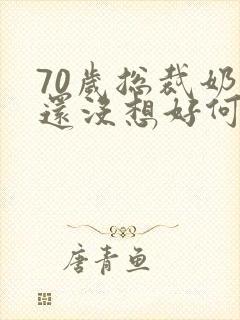 70歲總裁奶
還沒想好何
唐青魚